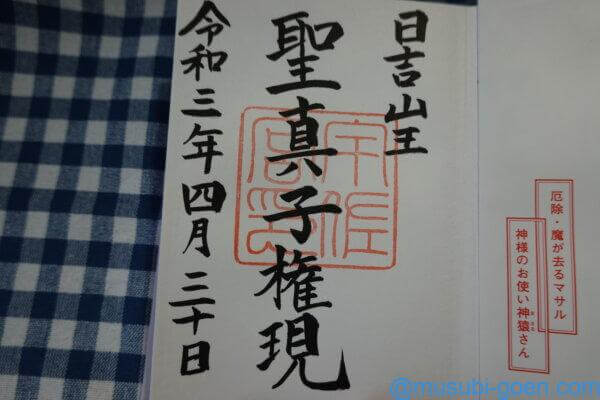 日吉山王
聖真子権現
令和三年四月三十日
宇佐
宮印
厄除・魔が去るマサル
神様のお使い神猿さん
まさる
@musubi-goen.com